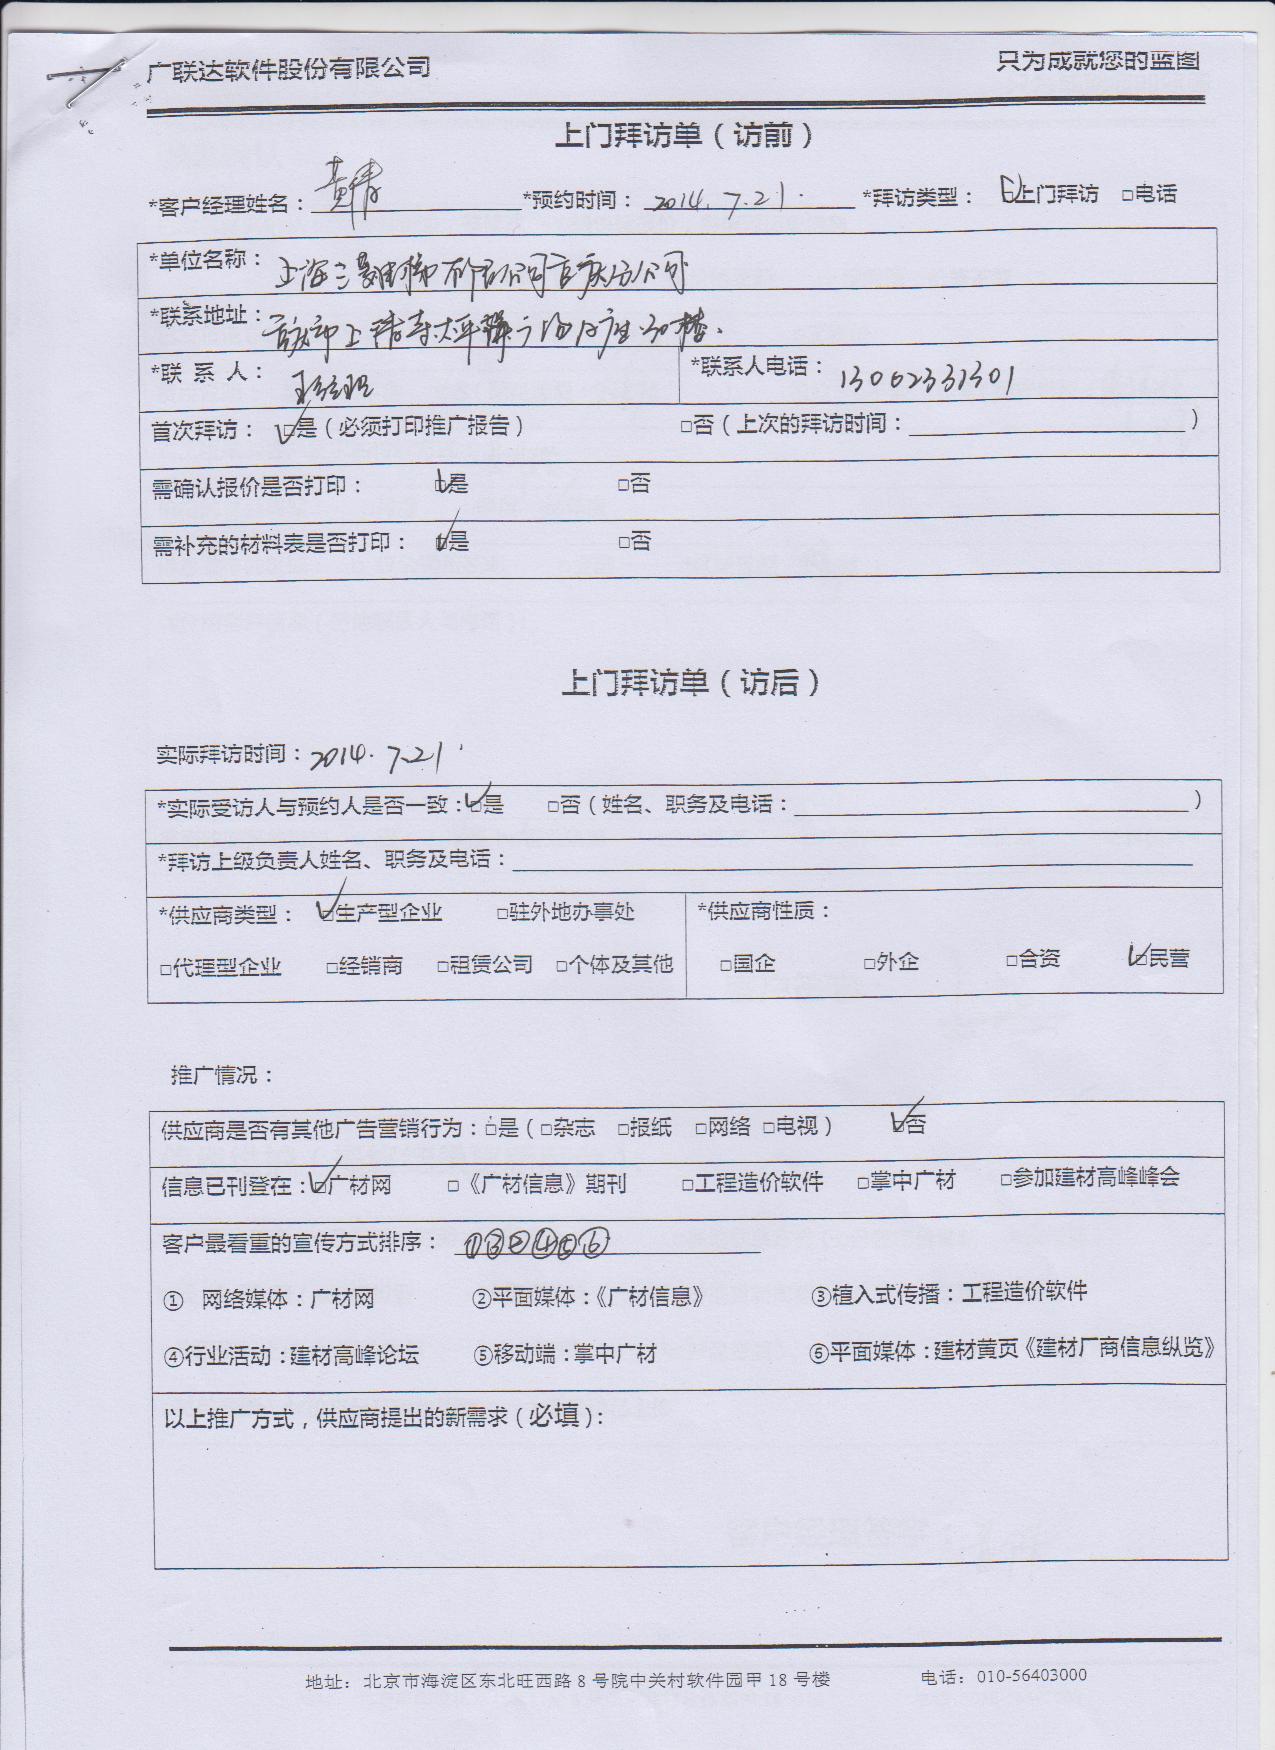 广联达软件股份有限公司 只为成就您的蓝图
上门拜访单（访前）
*客户经理姓名： *预约时间：2014.7.21. *拜访类型：□上门拜访 □电话
*单位名称：上海三菱电梯有限公司重庆分公司
*联系地址：重庆市上清寺太平洋广场B座30楼.
*联 系 人：王经理 *联系人电话：13062331301
首次拜访： □是（必须打印推广报告） □否（上次的拜访时间： ）
需确认报价是否打印： □是 □否
需补充的材料表是否打印： □是 □否
上门拜访单（访后）
实际拜访时间：2014.7.21.
*实际受访人与预约人是否一致：□是 □否（姓名、职务及电话： ）
*拜访上级负责人姓名、职务及电话：
*供应商类型： □生产型企业 □驻外地办事处 *供应商性质：
□代理型企业 □经销商 □租赁公司 □个体及其他 □国企 □外企 □合资 □民营
推广情况：
供应商是否有其他广告营销行为：□是（□杂志 □报纸 □网络 □电视） □否
信息已刊登在：□广材网 □《广材信息》期刊 □工程造价软件 □掌中广材 □参加建材高峰峰会
客户最看重的宣传方式排序： ①③②④⑤⑥
① 网络媒体：广材网 ②平面媒体：《广材信息》 ③植入式传播：工程造价软件
④行业活动：建材高峰论坛 ⑤移动端：掌中广材 ⑥平面媒体：建材黄页《建材厂商信息纵览》
以上推广方式，供应商提出的新需求（必填）：
地址：北京市海淀区东北旺西路 8 号院中关村软件园甲 18 号楼 电话：010-56403000